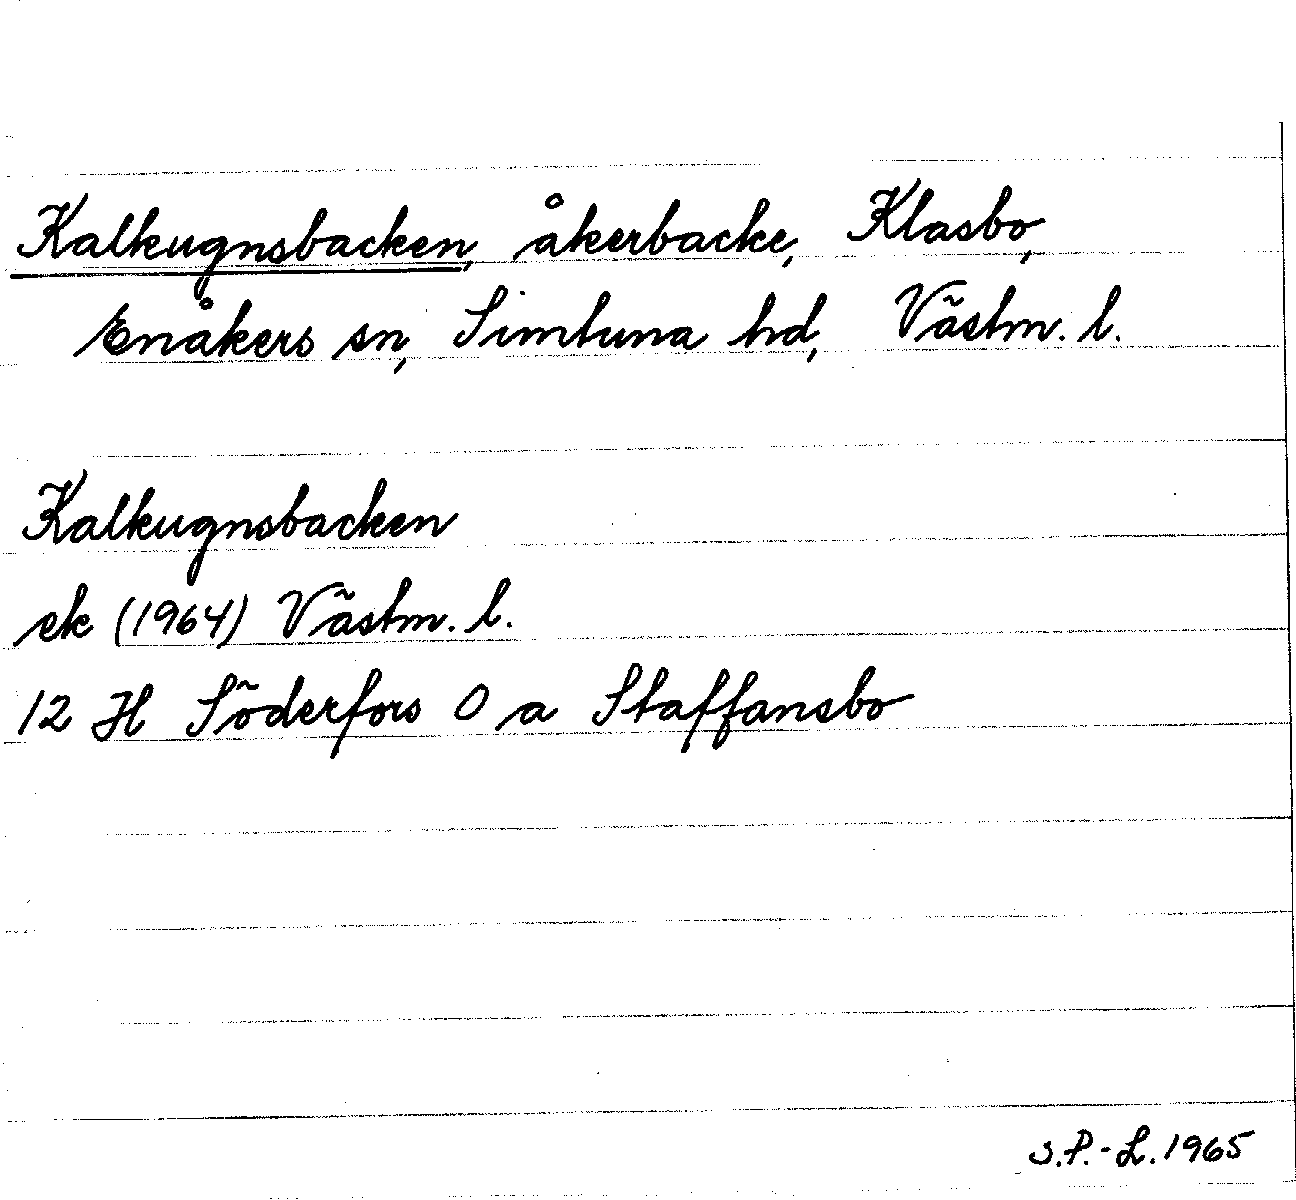 Kalkugnsbacken, åkerbacke, Klasbo,
Enåkers sn, Simtuna hd, Västm. l.
Kalkugnsbacken
ek (1964) Västm. l.
12 H Söderfors 0 a Staffansbo
S.P.-L. 1965